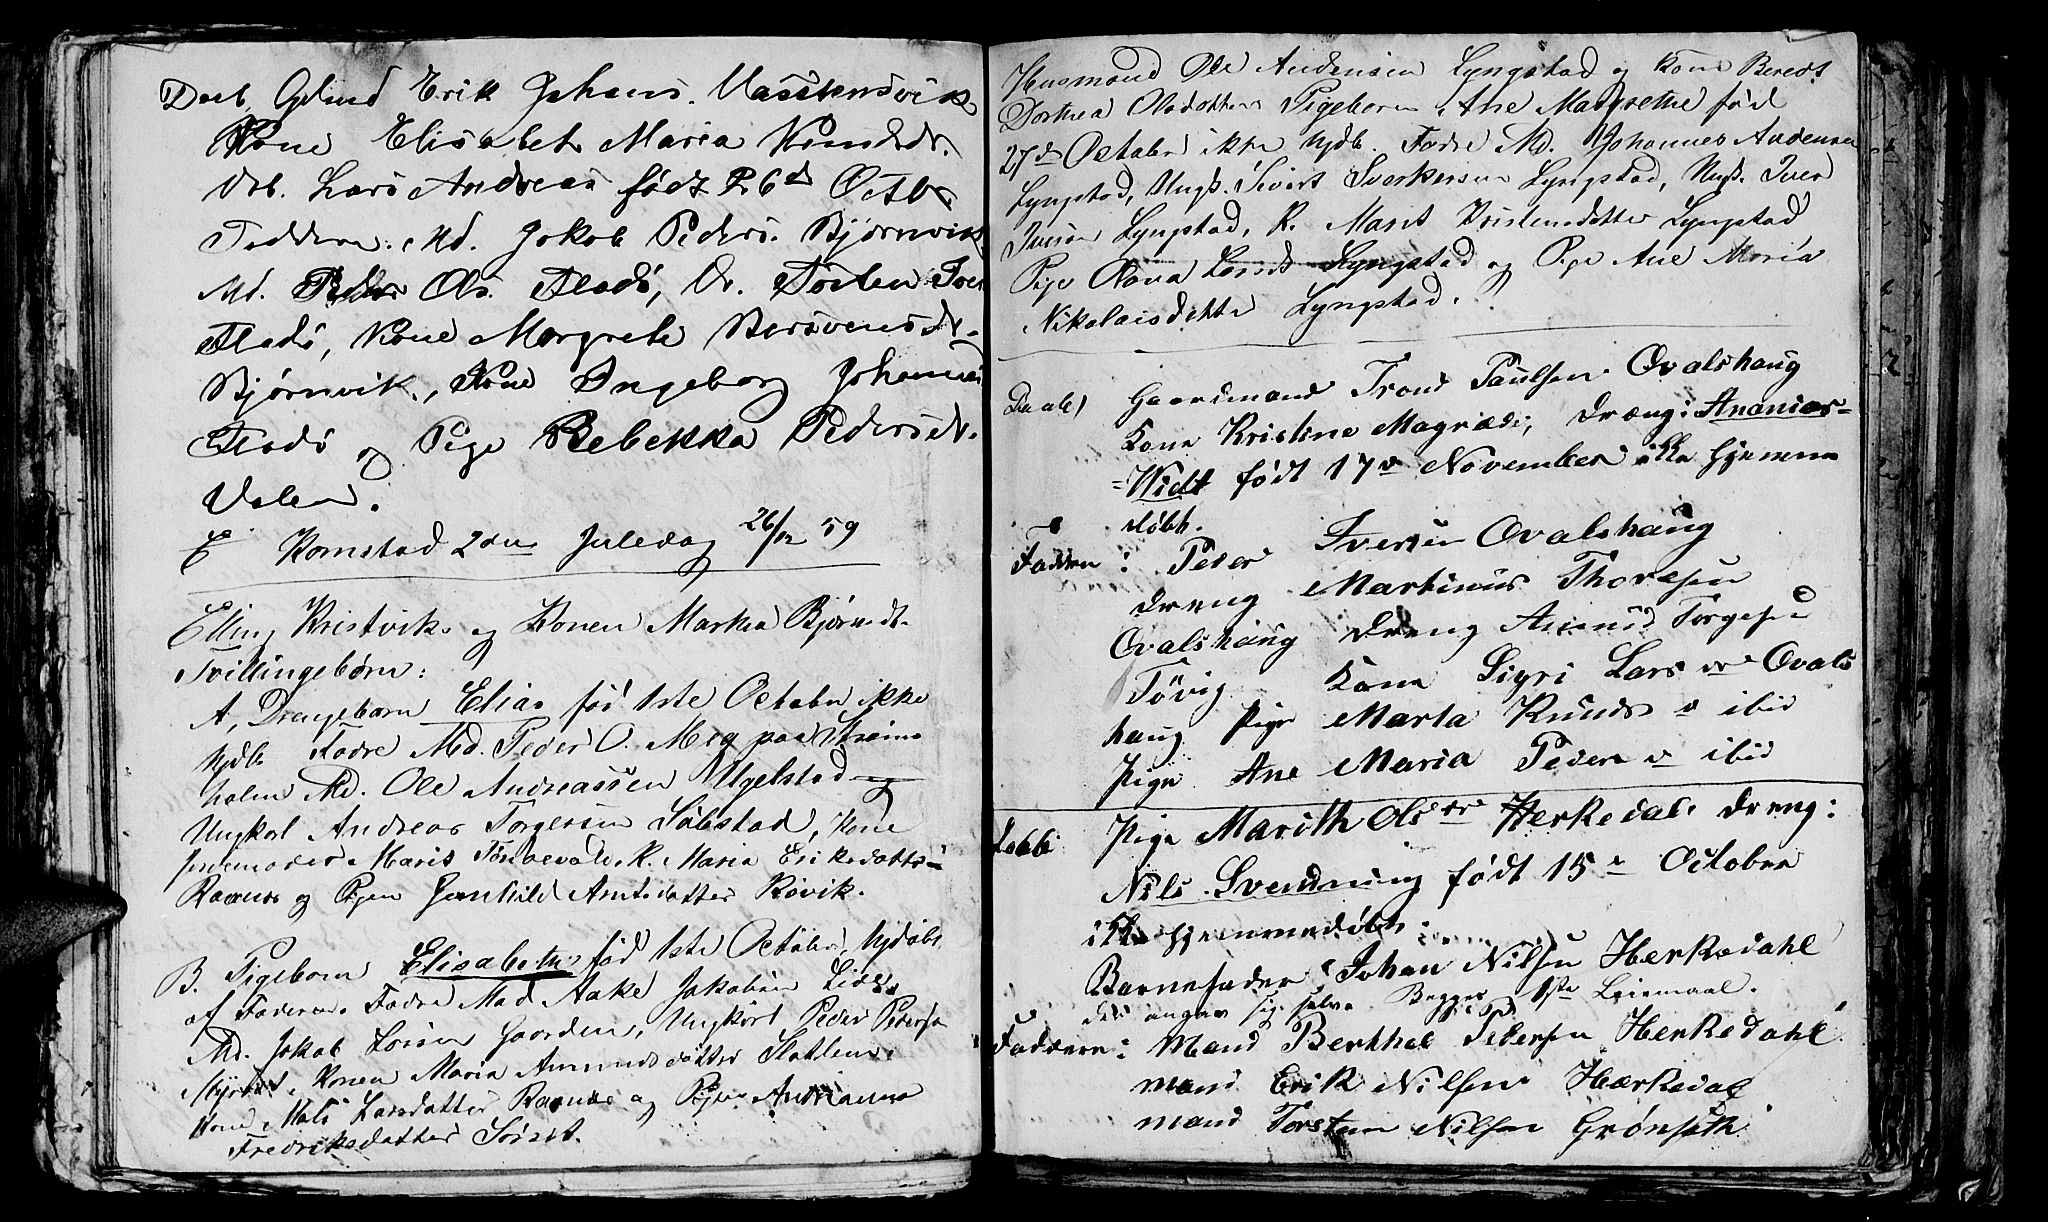 Daab, Gdmd Erik Johans. Vasstensvik
Kone Elisabet Maria Knudsdr.
Drb. Lars Andreas født 26d Octbr
Faddern: Md. Jakob Peders. Bjørnvik
Md. Peder Ols. Fladsø, Dr. Torsten Iver
Fladsø, Kone Margrete Bersvensdr.
Bjørnvik, Kone Ingeborg Johannes
Fladsø og Pige Rebekka Pedersdr.
Valen.
Kornstad 2den Juledag 26/12 59
Elling Kristvik og Konen Marta Bjørnsdt.
Tvillingebørn:
A, Drengebarn Elias fød 1ste October ikke
hjdb Fadre Md. Peder O. Meg paa Strøms
holm Md. Ole Andreassen Ugelstad og
Ungkarl Andreas Torgersen Solestad, Kone
Marit K. Maria Eriksdatter
Ramnes og Pigen Gunhild Arntsdatter Røvik.
B. Pigebarn Elisabeth fød 1ste October, hjdøbt
af Faderen. Fadre Mad Aake Jakobsen
Md. Jakob Larsen Gaarden, Ungkarl Peder Peders
Konen Maria Amundsdatter
Kone Mali Larsdatter Ramnes og Pigen Andrianna
Fredriksdatter Sørset.
Husmand Ole Andersen Lyngstad og Kone Beret
Dortea Olsdatters Pigebarn Ane Margrethe fød
27d October ikke hjdb. Fadre Md. Johannes Andersen
Lyngstad, Ungk. Sivert Sverkersen Lyngstad, Ungk. Iver
Iversen Lyngstad, K. Marit Kristensdatter Lyngstad
Pige Olava Larsd. Lyngstad og Pige Ane Maria
Nikolaisdatter Lyngstad.
Daab) Gaardmand Trond Paulsen Ovalshaug
Kone Kristine Magnidr, Dreng: Ananias-
=Widt født 17de November ikke hjemme
døbt.
Faddere: Peder Iversen Ovalshaug
Dreng Martinus Thoresen
Ovalshaug Dreng Amund Torgesen
Tøvig Kone Sigri Lars dr Ovals
haug Pige Marta Knuds dr ibid
Pige Ane Maria Peders dr ibid
Døbt Pige Marith Ols dr Herkedal: Dreng:
Nils Svendning født 15de October
ikke hjemmedøbt:
Barnefader, Johan Nilsen Herkedahl
der angav sig selv Begges 1ste Leiemaal.
Faddere: Mand Berthel Pedersen Herkedahl
mand Erik Nilsen Hærkedal
mand Torsten Nilsen Grønseth